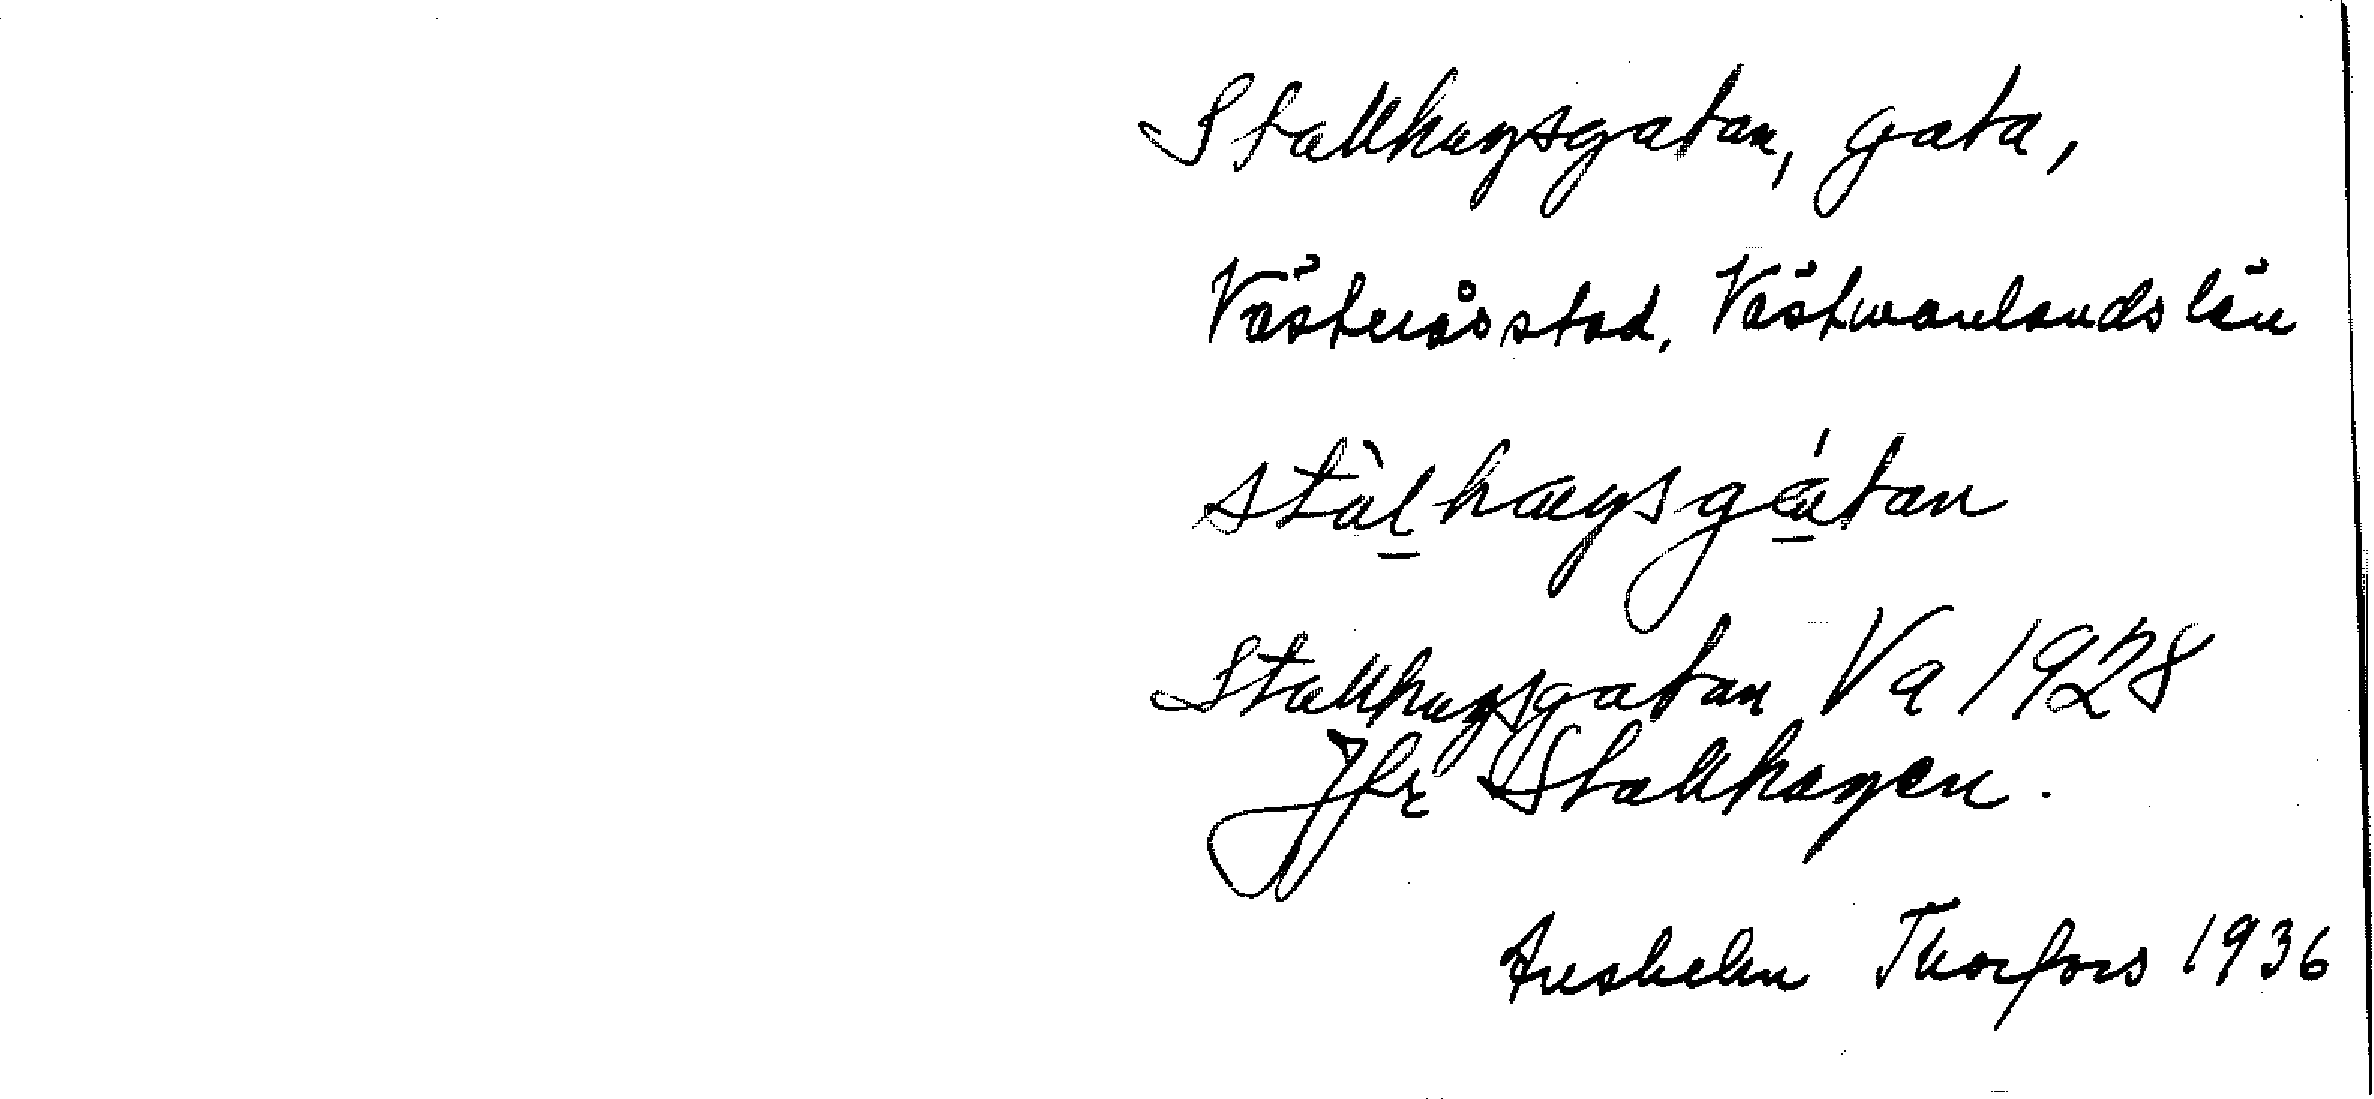 Stallhagsgatan, gata,
Västerås stad, Västmanlands län
stàl̲hagsgá̲tan
Stallhagsgatan Va 1928
Jfr Stallhagen.
Anshelm Thorfors 1936